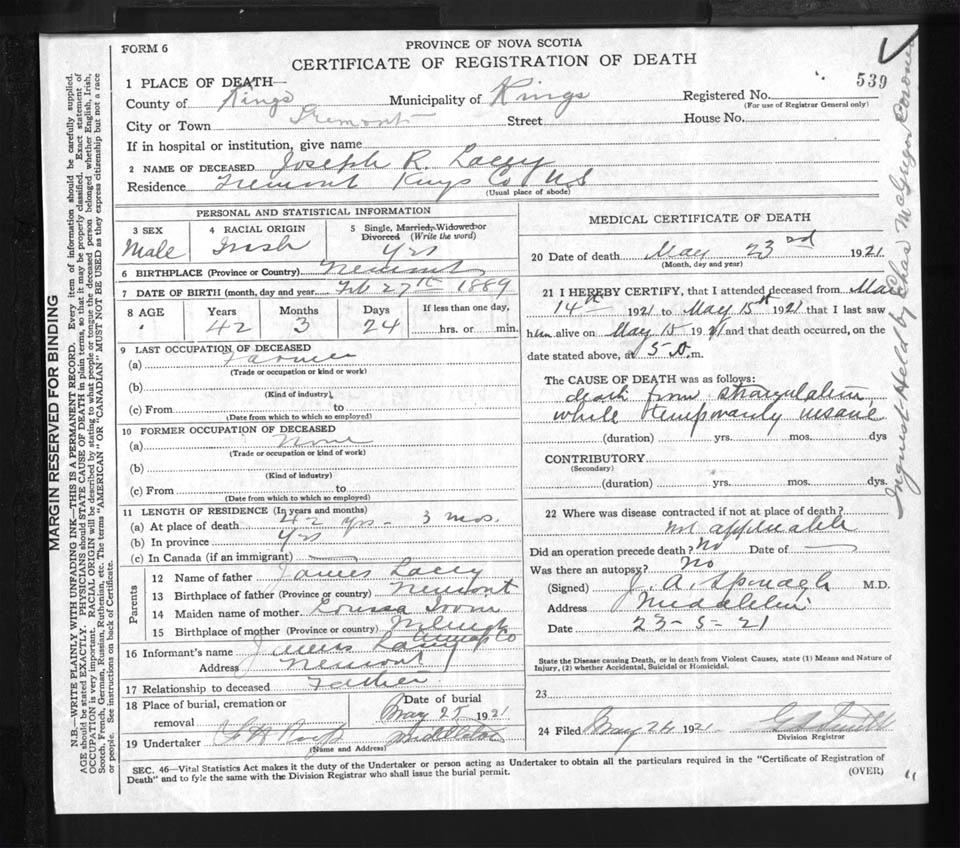 FORM 6
PROVINCE OF NOVA SCOTIA
CERTIFICATE OF REGISTRATION OF DEATH
539
1 PLACE OF DEATH—
County of Kings Municipality of Kings Registered No.
(For use of Registrar General only)
City or Town Tremont Street House No.
If in hospital or institution, give name
2 NAME OF DECEASED Joseph R. Lacey
Residence Tremont Kings Co N.S
(Usual place of abode)
PERSONAL AND STATISTICAL INFORMATION
3 SEX Male
4 RACIAL ORIGIN Irish
5 Single, Married, Widowed or Divorced (Write the word)
yes
6 BIRTHPLACE (Province or Country) Tremont
7 DATE OF BIRTH (month, day and year) Feb 27th 1889
8 AGE Years Months Days If less than one day,
42 3 24 hrs. or min.
9 LAST OCCUPATION OF DECEASED
(a) Farmer
(Trade or occupation or kind or work)
(b)
(Kind of industry)
(c) From to
(Date from which to which so employed)
10 FORMER OCCUPATION OF DECEASED
(a) None
(Trade or occupation or kind of work)
(b)
(Kind of industry)
(c) From to
(Date from which to which so employed)
11 LENGTH OF RESIDENCE (In years and months)
(a) At place of death 42 yrs - 3 mos.
(b) In province yrs
(c) In Canada (if an immigrant)
Parents
12 Name of father James Lacey
13 Birthplace of father (Province or country) Tremont
14 Maiden name of mother
15 Birthplace of mother (Province or country)
16 Informant's name James Lacey
Address Tremont
17 Relationship to deceased Father
18 Place of burial, cremation or removal
Date of burial
May 25 1921
19 Undertaker
(Name and Address)
MEDICAL CERTIFICATE OF DEATH
20 Date of death May 23rd 1921
(Month, day and year)
21 I HEREBY CERTIFY, that I attended deceased from May
14th 1921 to May 15th 1921 that I last saw
him alive on May 15 1921 and that death occurred, on the
date stated above, at 5 a.m.
The CAUSE OF DEATH was as follows:
death from strangulation
while temporarily insane
(duration) yrs. mos. dys
CONTRIBUTORY
(Secondary)
(duration) yrs. mos. dys.
22 Where was disease contracted if not at place of death?
not applicable
Did an operation precede death? No Date of
Was there an autopsy? No
(Signed) J. A. M.D.
Address
Date 23-5-21
State the Disease causing Death, or in death from Violent Causes, state (1) Means and Nature of
Injury, (2) whether Accidental, Suicidal or Homicidal.
23
24 Filed May 24 1921
Division Registrar
SEC. 46—Vital Statistics Act makes it the duty of the Undertaker or person acting as Undertaker to obtain all the particulars required in the "Certificate of Registration of
Death" and to fyle the same with the Division Registrar who shall issue the burial permit.
(OVER)
MARGIN RESERVED FOR BINDING
N.B.—WRITE PLAINLY WITH UNFADING INK—THIS IS A PERMANENT RECORD. Every item of information should be carefully supplied.
AGE should be stated EXACTLY. PHYSICIANS should STATE CAUSE OF DEATH in plain terms, so that it may be properly classified. Exact statement of
OCCUPATION is very important. RACIAL ORIGIN will be described by stating to what people or tongue the deceased person belonged whether English, Irish,
Scotch, French, German, Russian, Ruthenian, etc. The terms "AMERICAN" OR "CANADIAN" MUST NOT BE USED as they express citizenship but not a race
or people. See instructions on back of Certificate.
Inquest Held by Chas McGregor Coroner